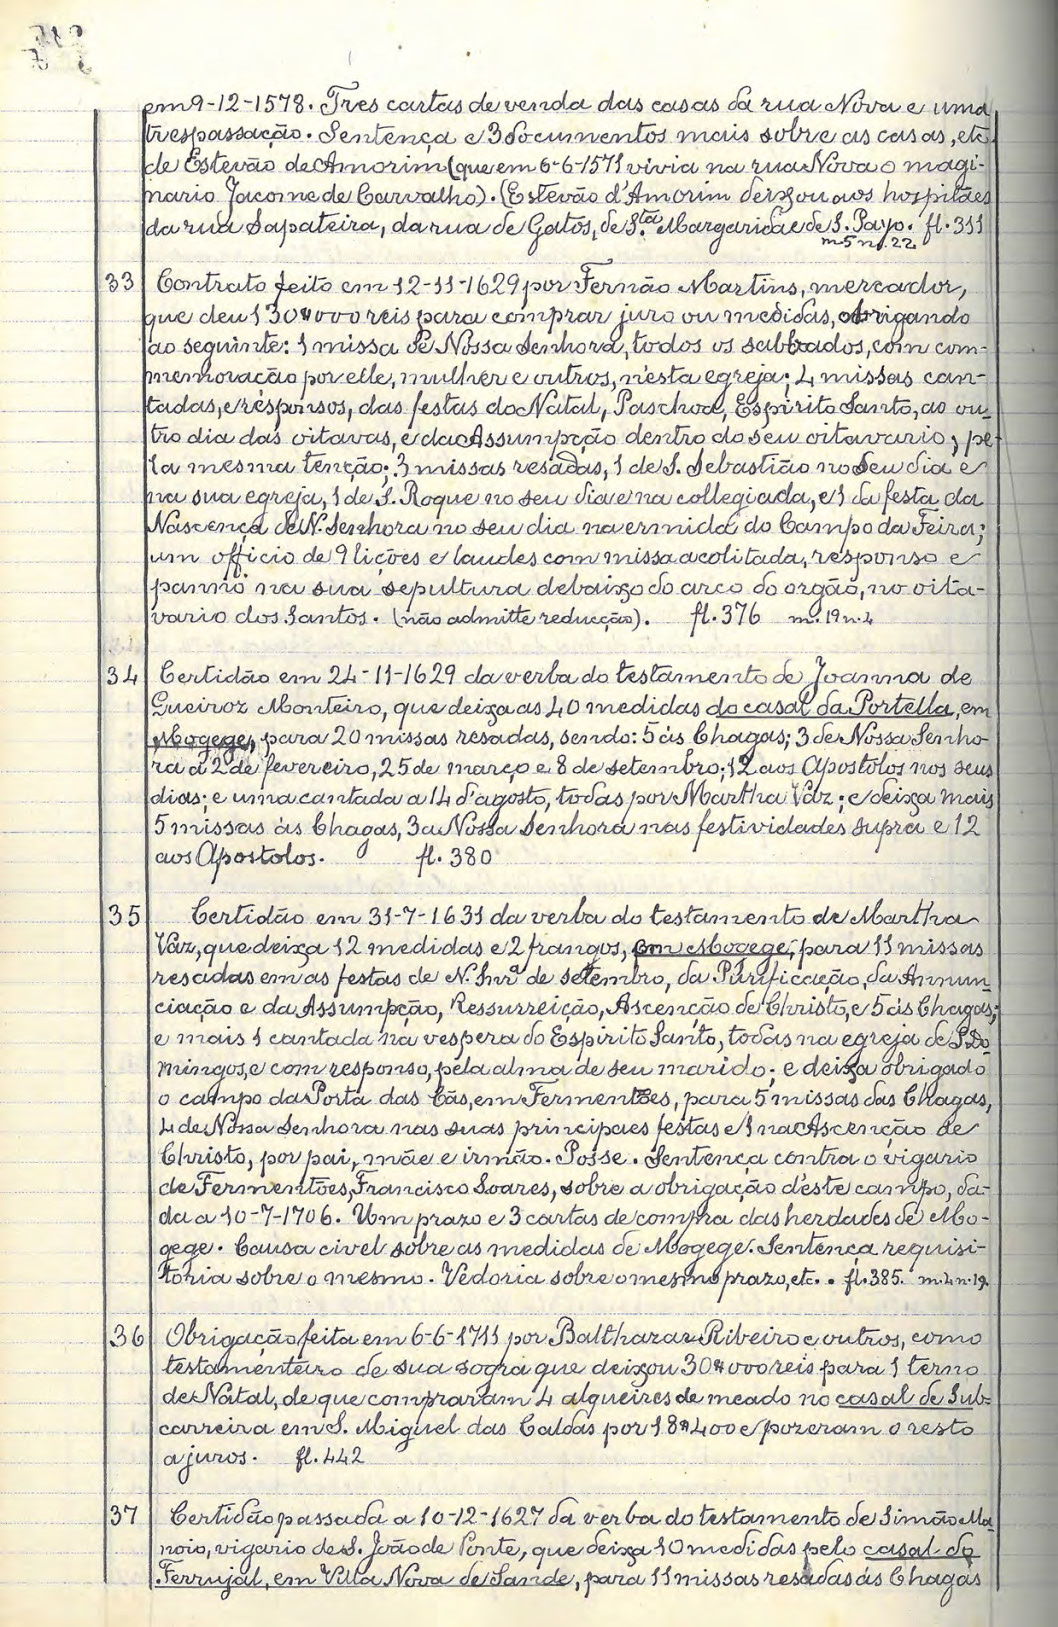 em 9-12-1578. Tres cartas de venda das casas da rua Nova e uma
trespassação. Sentença e 3 documentos mais sobre as casas, etc.
de Estevão de Amorim (que em 6-6-1571 vivia na rua Nova o magi-
nario Jacome de Carvalho). (Estevão d'Amorim deixou aos hospitáes
da rua Sapateira, da rua de Gatos, de S.ta Margarida e de S. Payo. fl. 311
m 5 n. 22
33 Contrato feito em 12-11-1629 por Fernão Martins, mercador,
que deu 130$000 reis para comprar juro ou medidas, obrigando
ao seguinte: 1 missa de Nossa Senhora, todos os sabbados, com com-
memoração por elle, mulher e outros, n'esta egreja; 4 missas can-
tadas, e responsos, das festas do Natal, Paschoa, Espirito Santo, ao ou-
tro dia das oitavas, e da Assumpção dentro do seu oitavario, pe-
la mesma tenção; 3 missas resadas, 1 de S. Sebastião no seu dia e
na sua egreja, 1 de S. Roque no seu dia e na collegiada, e 1 da festa da
Nascença de N. Senhora no seu dia na ermida do Campo da Feira;
um officio de 9 lições e laudes com missa acolitada, responso e
panno na sua sepultura debaixo do arco do orgão, no oita-
vario dos Santos. (não admitte reducção). fl. 376 m. 19 n. 4
34 Certidão em 24-11-1629 da verba do testamento de Joanna de
Gueiroz Monteiro, que deixa as 40 medidas do casal da Portella, em
Mogege, para 20 missas resadas, sendo: 5 ás Chagas; 3 de Nossa Senho-
ra a 2 de fevereiro, 25 de março e 8 de setembro; 12 aos Apostolos nos seus
dias; e uma cantada a 14 d'agosto, todas por Martha Vaz; e deixa mais
5 missas ás Chagas, 3 a Nossa Senhora nas festividades supra e 12
aos Apostolos. fl. 380
35 Certidão em 31-7-1631 da verba do testamento de Martha
Vaz, que deixa 12 medidas e 2 frangos, em Mogege, para 11 missas
resadas em as festas de N. Snr.ª de setembro, da Purificação, da Annun-
ciação e da Assumpção, Ressurreição, Ascenção de Christo, e 5 ás Chagas;
e mais 1 cantada na vespera do Espirito Santo, todas na egreja de S. Do-
mingos, e com responso, pela alma de seu marido; e deixa obrigado
o campo da Porta das Cãs, em Fermentões, para 5 missas das Chagas,
4 de Nossa Senhora nas suas principaes festas e 1 na Ascenção de
Christo, por pai, mãe e irmão. Posse. Sentença contra o vigario
de Fermentões, Francisco Soares, sobre a obrigação d'este campo, da-
da a 10-7-1706. Um prazo e 3 cartas de compra das herdades de Mo-
gege. Causa civel sobre as medidas de Mogege. Sentença requisi-
toria sobre o mesmo. Vedoria sobre o mesmo prazo, etc.. fl. 385. m. 4 n. 19.
36 Obrigação feita em 6-6-1711 por Balthazar Ribeiro e outros, como
testamenteiro de sua sogra que deixou 30$000 reis para 1 terno
de Natal, de que compraram 4 alqueires de meado no casal de Sub-
carreira em S. Miguel das Caldas por 18$400 e pozeram o resto
a juros. fl. 442
37 Certidão passada a 10-12-1627 da verba do testamento de Simão Ma-
noio, vigario de S. João de Ponte, que deixa 10 medidas pelo casal do
Ferrujal, em Villa Nova de Sande, para 11 missas resadas ás Chagas